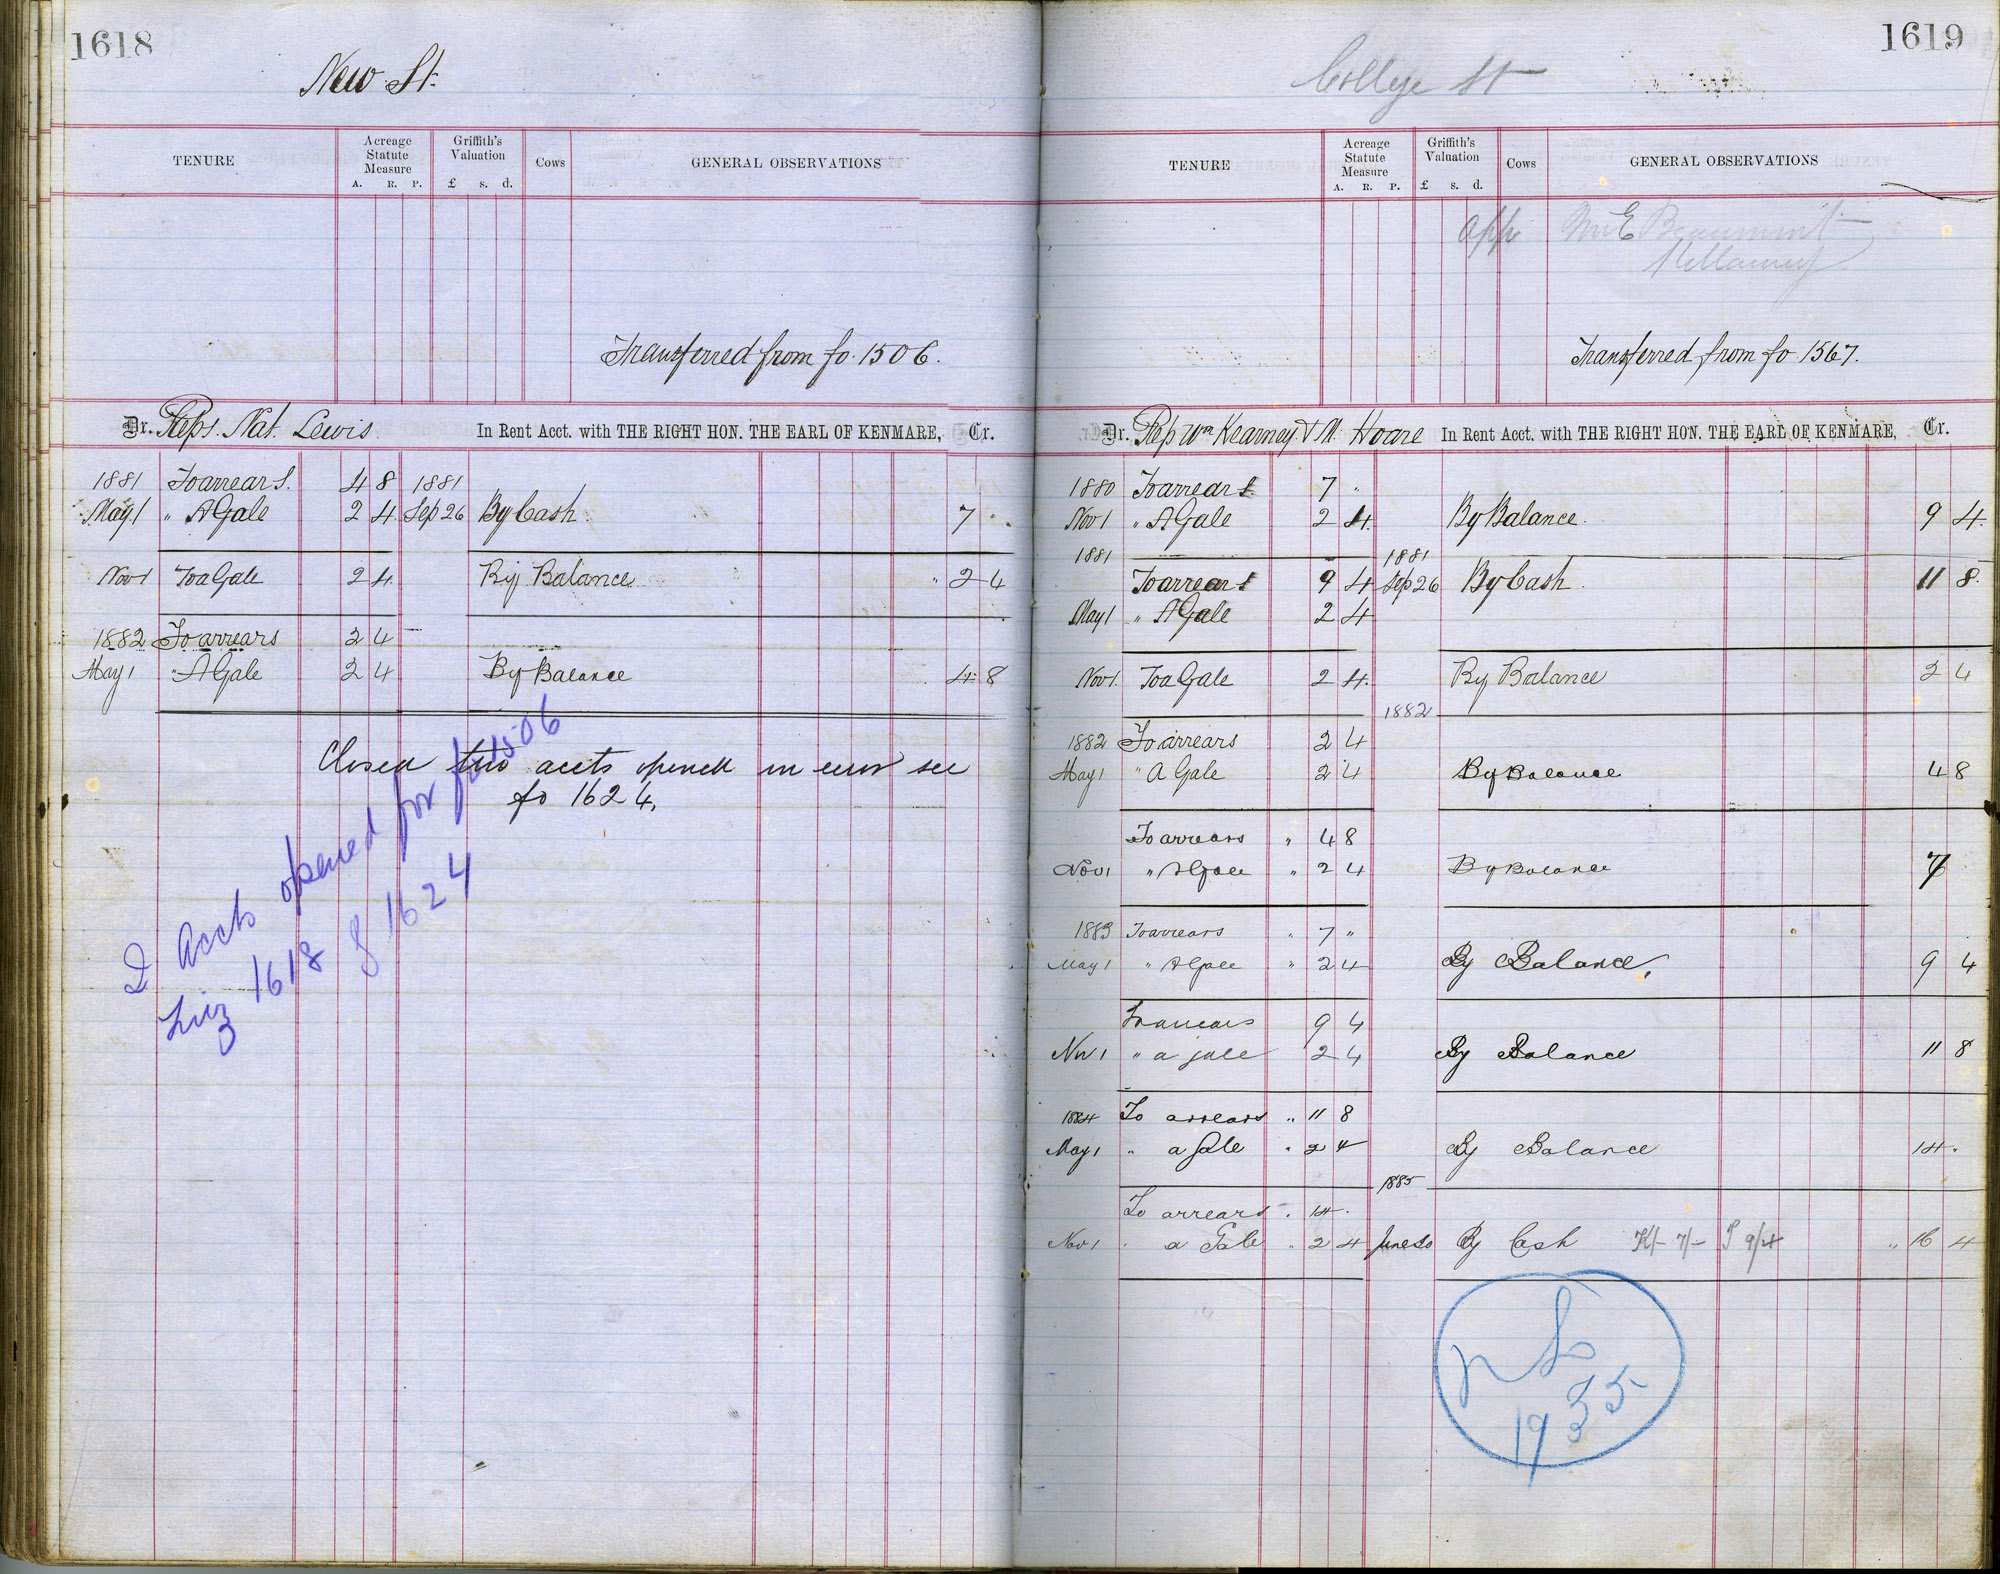 1618
New St.
TENURE
Acreage Statute Measure
A. R. P.
Griffith's Valuation
£ s. d.
Cows
GENERAL OBSERVATIONS
Transferred from fo. 1506.
Dr. Reps. Nat. Lewis In Rent Acct. with THE RIGHT HON. THE EARL OF KENMARE, Cr.
1881 To arrears. 4 8 1881
May 1 " A Gale 2 4 Sep 26 By Cash 7 "
Nov 1 To a Gale 2 4 By Balance " 2 4
1882 To arrears 2 4
May 1 " A Gale 2 4 By Balance 4 8
Closed two accts opened in error see
fo 1624,
2 Accts opened for fo 1506
viz 1618 & 1624
1619
College St
TENURE
Acreage Statute Measure
A. R. P.
Griffith's Valuation
£ s. d.
Cows
GENERAL OBSERVATIONS
Mr E Beaumont
Killarney
Transferred from fo 1567.
Dr. Rep Wm Kearney & M. Hoare In Rent Acct. with THE RIGHT HON. THE EARL OF KENMARE, Cr.
1880 To arrears 7 "
Nov 1 " A Gale 2 4 By Balance. 9 4
1881 1881
To arrears 9 4 Sep 26 By Cash. 11 8
May 1 " A Gale 2 4
Nov 1 To a Gale 2 4 By Balance 2 4
1882
1882 To arrears 2 4
May 1 " A Gale 2 4 By Balance 4 8
To arrears " 4 8
Nov 1 " A Gale " 2 4 By Balance 7
1883 To arrears " 7 "
May 1 " A Gale " 2 4 By Balance, 9 4
To arrears 9 4
Nov 1 " a gale 2 4 By Balance 11 8
1884 To arrears " 11 8
May 1 " a Gale " 2 4 By Balance 14 "
1885
To arrears " 14 "
Nov 1 " a Gale " 2 4 June By Cash 7/- 9/4 " 16 4
1935